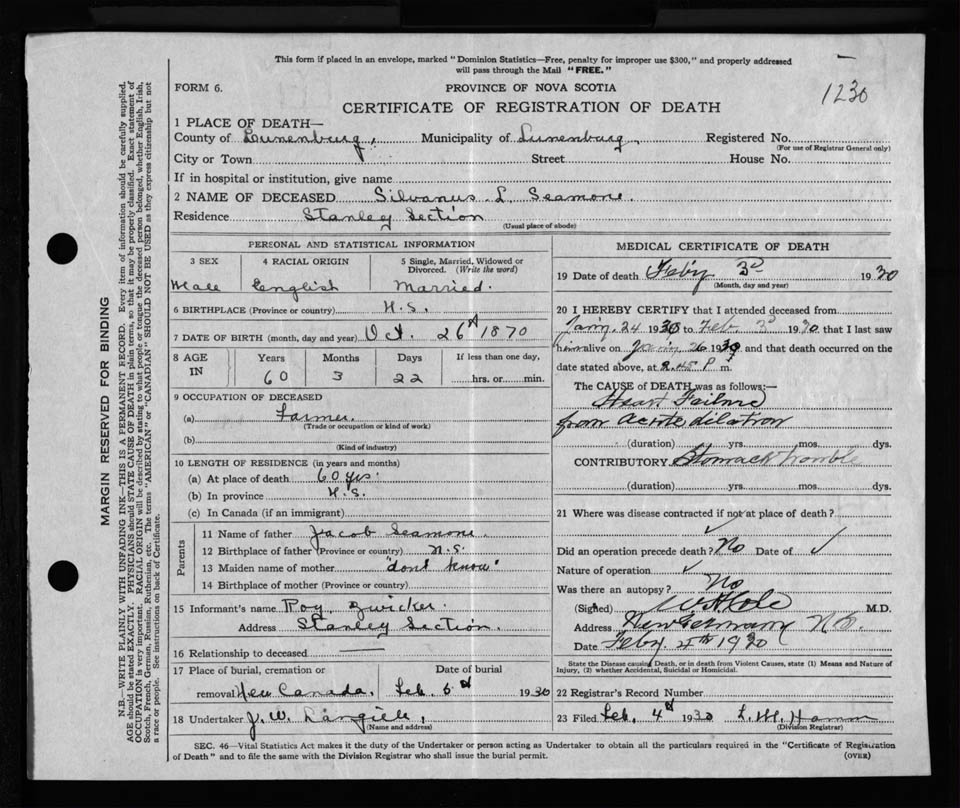 This form if placed in an envelope, marked "Dominion Statistics—Free, penalty for improper use $300," and properly addressed
will pass through the Mail "FREE."
FORM 6.
PROVINCE OF NOVA SCOTIA
1230
CERTIFICATE OF REGISTRATION OF DEATH
1 PLACE OF DEATH—
County of Lunenburg, Municipality of Lunenburg, Registered No.
(For use of Registrar General only)
City or Town Street House No.
If in hospital or institution, give name
2 NAME OF DECEASED Silvanus L. Seamone.
Residence Stanley Section
(Usual place of abode)
PERSONAL AND STATISTICAL INFORMATION
3 SEX 4 RACIAL ORIGIN 5 Single, Married, Widowed or
Divorced. (Write the word)
Male English Married.
6 BIRTHPLACE (Province or country) N.S.
7 DATE OF BIRTH (month, day and year) Oct. 26th 1870
8 AGE IN Years Months Days If less than one day,
60 3 22 hrs. or min.
9 OCCUPATION OF DECEASED
(a) Farmer.
(Trade or occupation or kind of work)
(b)
(Kind of industry)
10 LENGTH OF RESIDENCE (in years and months)
(a) At place of death 60 yrs.
(b) In province N.S.
(c) In Canada (if an immigrant)
Parents
11 Name of father Jacob Seamone.
12 Birthplace of father (Province or country) N.S.
13 Maiden name of mother "dont know"
14 Birthplace of mother (Province or country)
15 Informant's name Roy Zwicker.
Address Stanley Section.
16 Relationship to deceased
17 Place of burial, cremation or Date of burial
removal New Canada. Feb. 6th 1930
18 Undertaker J. W. Langille,
(Name and address)
MEDICAL CERTIFICATE OF DEATH
19 Date of death Feby 3d 1930
(Month, day and year)
20 I HEREBY CERTIFY that I attended deceased from
Jany. 24 1930 to Feb 3d 1930 that I last saw
him alive on Jany 26 1930 and that death occurred on the
date stated above, at 2.45 P m.
The CAUSE of DEATH was as follows:—
Heart Failure
from acute dilation
(duration) yrs. mos. dys.
CONTRIBUTORY Stomach trouble
(duration) yrs. mos. dys.
21 Where was disease contracted if not at place of death?
Did an operation precede death? No Date of
Nature of operation
Was there an autopsy? No
(Signed) W A Cole M.D.
Address New Germany N.S.
Date Feby. 4th 1930
State the Disease causing Death, or in death from Violent Causes, state (1) Means and Nature of
Injury, (2) whether Accidental, Suicidal or Homicidal.
22 Registrar's Record Number
23 Filed Feb. 4th 1930 L. M. Hamm
(Division Registrar)
SEC. 46—Vital Statistics Act makes it the duty of the Undertaker or person acting as Undertaker to obtain all the particulars required in the "Certificate of Registration
of Death" and to file the same with the Division Registrar who shall issue the burial permit.
(OVER)
MARGIN RESERVED FOR BINDING
N.B.—WRITE PLAINLY WITH UNFADING INK—THIS IS A PERMANENT RECORD. Every item of information should be carefully supplied.
AGE should be stated EXACTLY. PHYSICIANS should STATE CAUSE OF DEATH in plain terms, so that it may be properly classified. Exact statement of
OCCUPATION is very important. RACIAL ORIGIN will be described by stating to what people or tongue the deceased person belonged, whether English, Irish,
Scotch, French, German, Russian, Ruthenian, etc. The terms "AMERICAN" or "CANADIAN" SHOULD NOT BE USED as they express citizenship but not
a race or people. See instructions on back of Certificate.